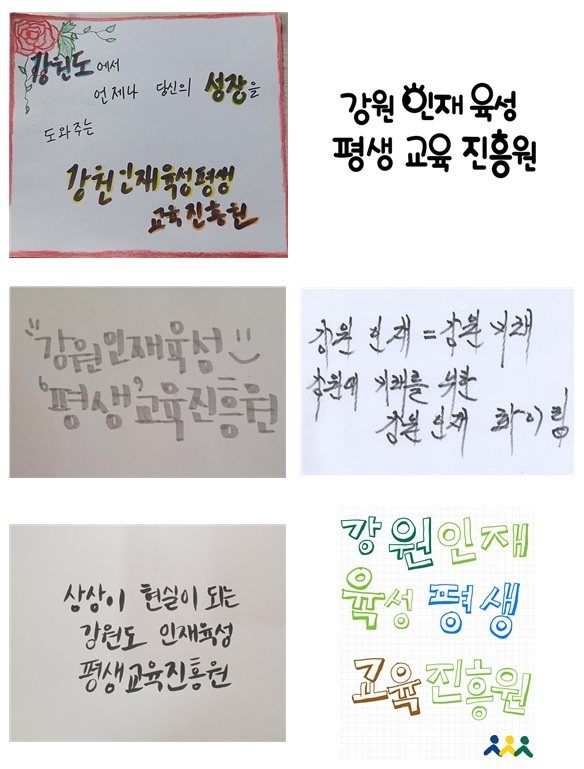 강원도에서
언제나 당신의 성장을
도와주는
강원인재육성평생
교육진흥원
강원 인재 육성
평생 교육 진흥원
"강원인재육성
'평생'교육진흥원
강원 인재 = 강원 미래
강원의 미래를 위한
강원 인재 화이팅
상상이 현실이 되는
강원도 인재육성
평생교육진흥원
강원인재
육성 평생
교육진흥원